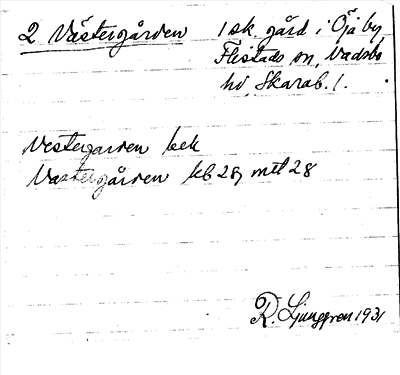 2 Västergården 1 sk. gård i Öjä by,
Flistads sn, Vadsbo
hd, Skarab. l.
Vestergarden bek
Vastergården kb 28, mtl 28
R. Ljunggren 1931